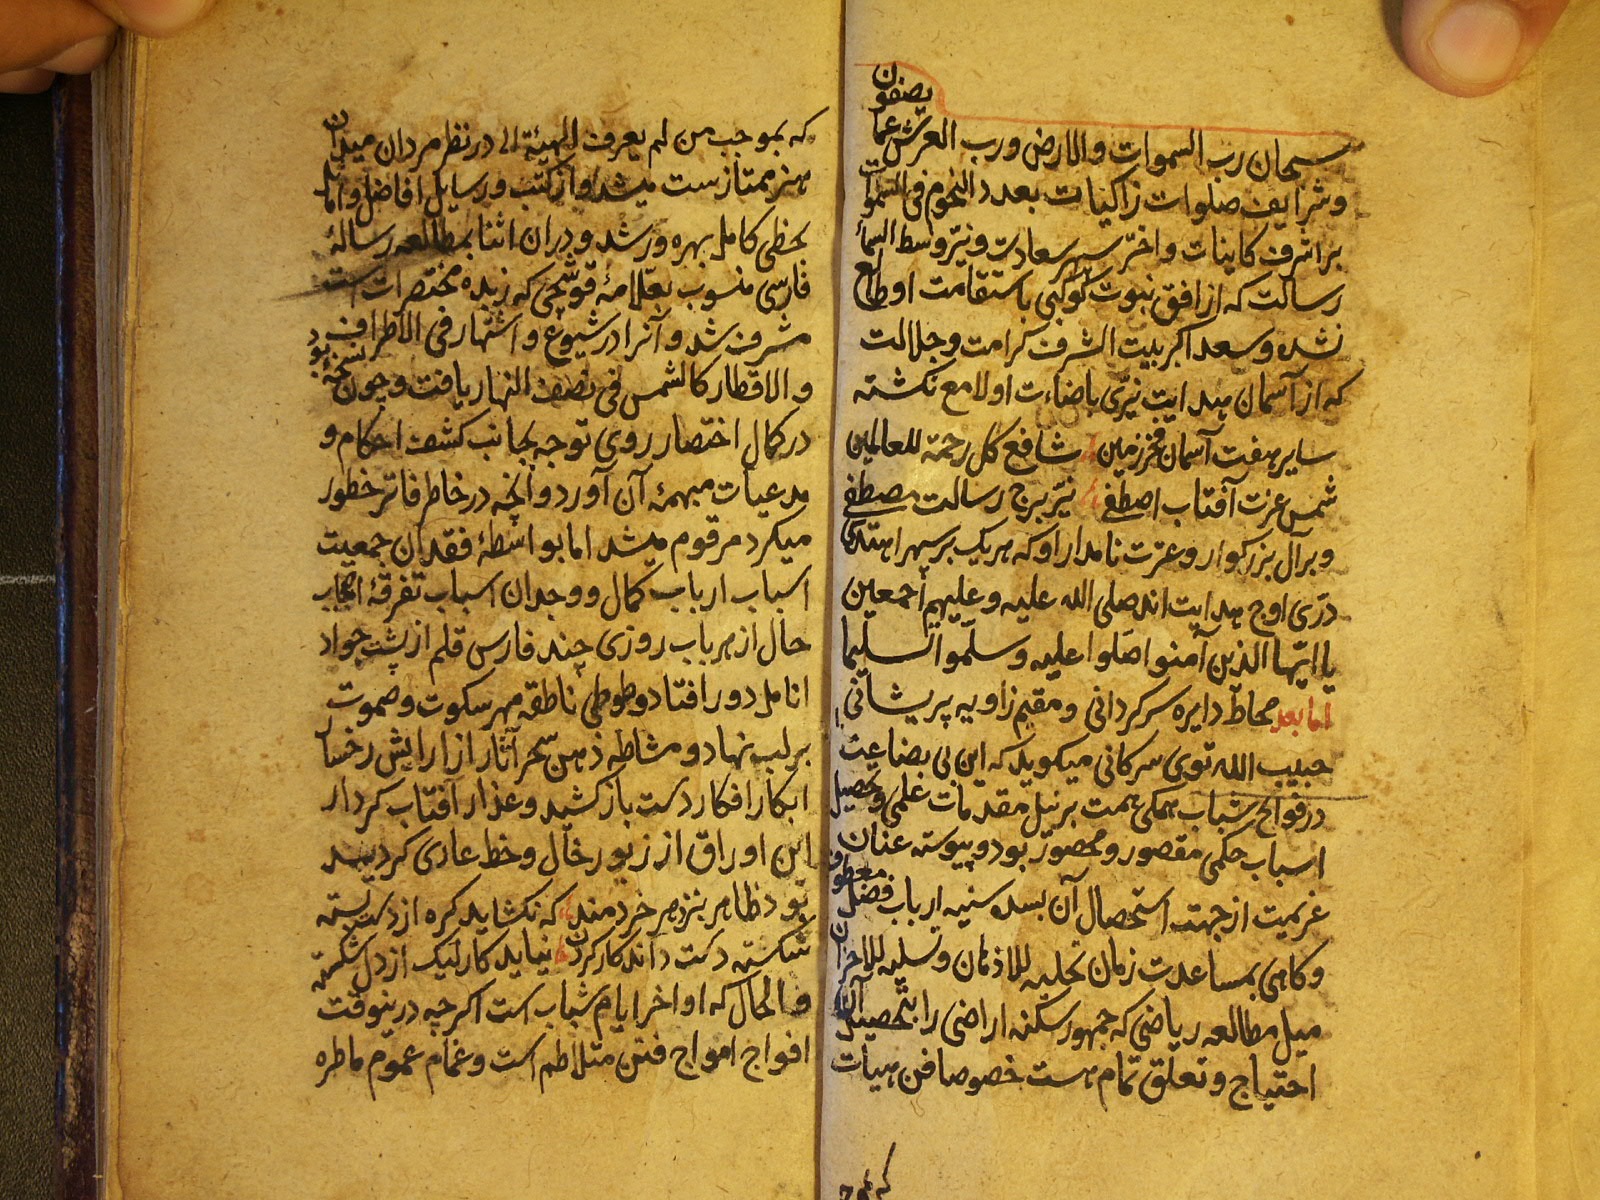 سبحان رب السموات والارض و رب العرش عما یصفون
و شرایف صلوات زاکیات بعدد النجوم فی السموات
بر اشرف کاینات و اختر سپهر سعادت و نیر وسط السمآء
رسالت که از افق نبوت کوکبی باستقامت او طالع
نشده و سعد اکبر بیت الشرف کرامت و جلالت
که از آسمان هدایت نیری باضاءت او لامع نکشته
سایر هفت آسمان فخر زمین شافع کل رحمة للعالمین
شمس عزت آفتاب اصطفی نیر برج رسالت مصطفی
و برآل بزرکوار و عترت نامدار او که هریک بر سپهر اهتدی
دری اوج هدایت اند صلی الله علیه و علیهم أجمعین
یا ایها الذین آمنوا صلوا علیه و سلموا تسلیما
اما بعد محاط دایره سرکردانی و مقیم زاویه پریشانی
حبیب الله توی سرکانی میکوید که این بی بضاعت
در فواتح شباب همکی همت بر نیل مقدمات علمی و تحصیل
اسباب حکمی مقصور و محصور بود و پیوسته عنان
عزیمت از جهت استحصال آن بسده سنیه ارباب فضل معطوف
و کاهی بمساعدت زمان تحلیه للاذهان و تسلیه للاحزان
میل مطالعه ریاضی که جمهور سکنه اراضی را بتحصیل آن
احتیاج و تعلق تمام هست خصوصا فن هیات
که بموجب
که بموجب من لم یعرف الهیئة الی در نظر مردان میدان
هنر ممتازست میشد و از کتب و رسایل افاضل و اماثل
بحظی کامل بهره ور شد و دران اثنا بمطالعه رسالۀ
فارسی منسوب بعلامۀ قوشجی که زبده مختصرات است
مشرف شد و آنرا در شیوع و اشتهار فی الاطراف
و الاقطار کالشمس فی نصف النهار یافت و چون نسخۀ بود
در کمال اختصار روی توجه بجانب کشف احکام و
مدعیات مبهمۀ آن آورد و آنچه در خاطر فاتر خطور
میکرد مرقوم میشد اما بواسطۀ فقدان جمعیت
اسباب ارباب کمال و وجدان اسباب تفرقۀ اصحاب
حال از هر باب روزی چند فارس قلم از پشت جواد
انامل دور افتاد و طوطی ناطقه مهر سکوت و صموت
بر لب نهاد و مشاطه ذهن سحر آثار از ارایش رخسار
ابکار افکار دست باز کشید و عذار آفتاب کردار
این اوراق از زیور خال و خط عاری کردید
بود ظاهر بنزد هر خردمند که نکشاید کره از دست بسته
شکسته دست داند کار کردن نیاید کار لیک از دل شکسته
و الحال که اواخر ایام شباب است اکرچه درینوقت
افواج امواج فتن متلاطم است و غمام عموم ماطره